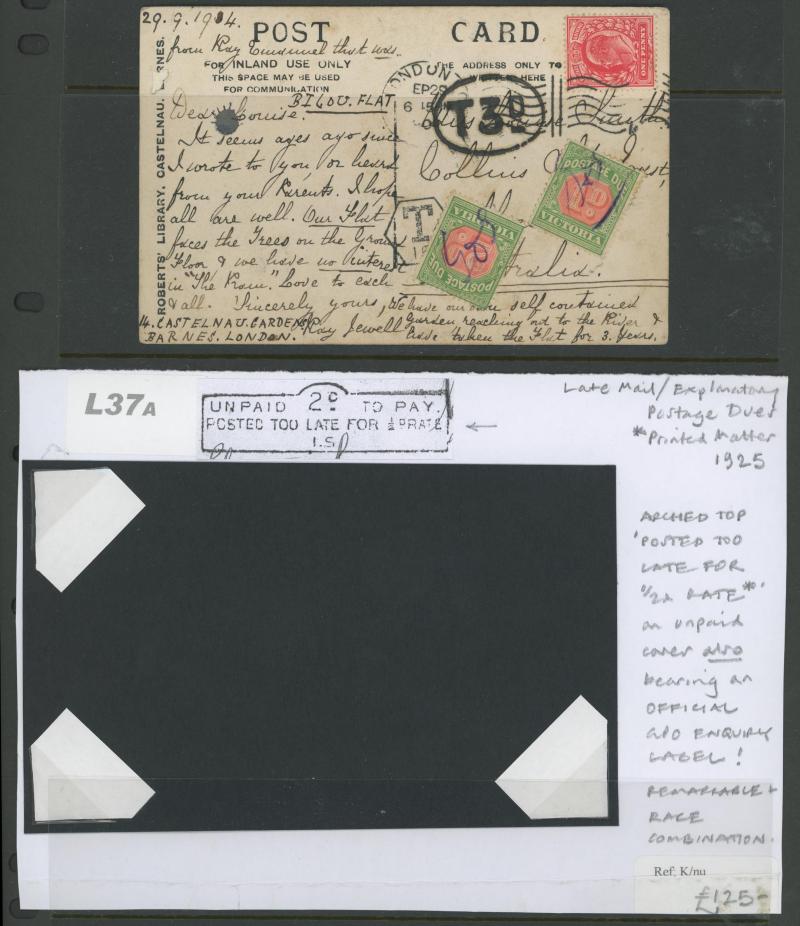 29.9.1904.
POST CARD.
from Kay Emanuel that was.
FOR INLAND USE ONLY
THIS SPACE MAY BE USED
FOR COMMUNICATION
THE ADDRESS ONLY TO
WRITTEN HERE
ROBERTS' LIBRARY, CASTELNAU, BARNES.
BIJOU. FLAT
Dear Louise.
It seems ages ago since
I wrote to you, or heard
from your Parents. I hope
all are well. Our Flat
faces the Trees on the Ground
Floor & we have no interest
in "The Kam". Love to each
& all. Sincerely yours,
Kay Jewell
14. CASTELNAU. GARDENS
BARNES. LONDON.
We have our own self contained
Garden reaching out to the River &
have taken the Flat for 3. Years.
ONE PENNY
LONDON
SEP 29
6 15
T3D
Collins
Australia.
T
POSTAGE DUE
VICTORIA
POSTAGE DUE
VICTORIA
L37A
UNPAID 2D TO PAY.
POSTED TOO LATE FOR ½D RATE
I.S.
Late Mail/Explanatory
Postage Dues
*Printed Matter
1925
ARCHED TOP
'POSTED TOO
LATE FOR
1/2d RATE*'
on unpaid
cover also
bearing an
OFFICIAL
GPO ENQUIRY
LABEL!
REMARKABLE +
RARE
COMBINATION.
Ref. K/nu
£125-